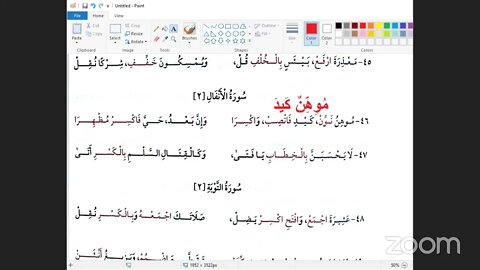 Untitled - Paint
File Home View
Paste Select Brushes Shapes Size Color 1 Color 2 Edit colors
Clipboard Image Tools Shapes Colors
٤٥- مَعْذِرَةَ ارْفَعْ، بَيْئَسٍ بِالْخُلْفِ قُلْ، وَيُمْسِكُونَ خَفِّفِ، شِرْكًا نُقِلْ
سُورَةُ الْأَنْفَالِ [٢]
مُوهِنٌ كَيدَ
٤٦- مُوهِنُ نَوِّنْ، كَيْدِ فَانْصِبْ، وَاكْسِرَا وَإِنَّ بَعْدُ، حَيَّ فَاكْسِرْ مُظْهِرَا
٤٧- لَا يَحْسَبَنَّ بِالْخِطَابِ يَا فَتَى، وَكَالْقِتَالِ السَّلْمِ بِالْكَسْرِ أَتَى
سُورَةُ التَّوْبَةِ [٢]
٤٨- عَشِيرَةَ اجْمَعْ، وَافْتَحِ اكْسِرْ يَضِلْ، صَلَاتَكَ اجْمَعْهُ وَبِالْكَسْرِ نُقِلْ
1952 × 3522px 50%
zoom